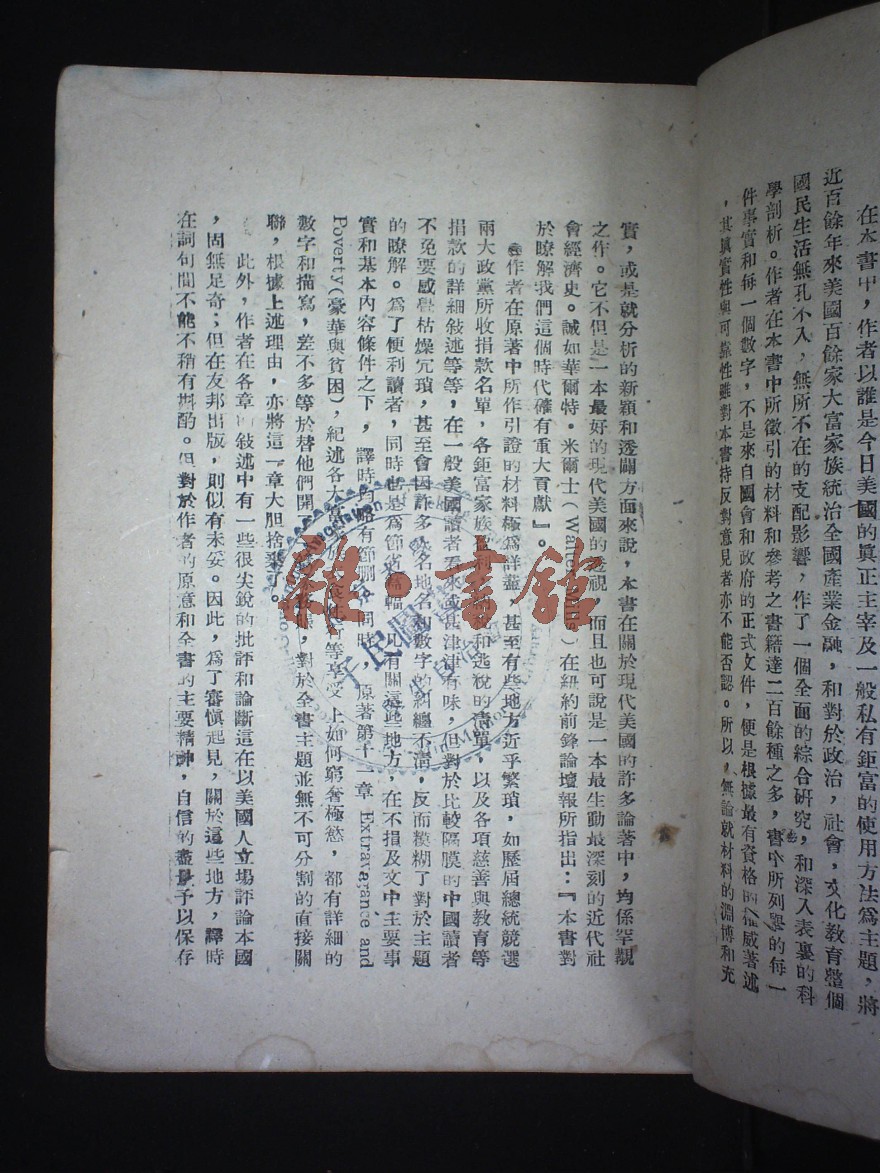 在本書中，作者以誰是今日美國的真正主宰及一般私有鉅富的使用方法爲主題，將
近百餘年來美國百餘家大富家族統治全國產業金融，和對於政治，社會，文化教育整個
國民生活無孔不入，無所不在的支配影響，作了一個全面的綜合研究，和深入表裏的科
學剖析。作者在本書中所徵引的材料和參考之書籍達二百餘種之多，書中所列舉的每一
件事實和每一個數字，不是來自國會和政府的正式文件，便是根據最有資格的權威著述
，其眞實性與可靠性雖對本書持反對意見者亦不能否認。所以，無論就材料的淵博和充
實，或是就分析的新穎和透闢方面來說，本書在關於現代美國的許多論著中，均係罕覯
之作。它不但是一本最好的現代美國的透視，而且也可說是一本最生動最深刻的近代社
會經濟史。誠如華爾特·米爾士(Walter 在紐約前鋒論壇報所指出：『本書對
於瞭解我們這個時代確有重大貢獻』。
作者在原著中所作引證的材料極爲詳盡，甚至有些地方近乎繁瑣，如歷屆總統競選
兩大政黨所收捐款名單，各鉅富家族盈利，納稅和逃稅的清單，以及各項慈善與教育等
捐款的詳細敍述等等，在一般美國讀者看來或甚津津有味，但對於比較隔膜的中國讀者
不免要感覺枯燥冗瑣，甚至會因許多人名地名和數字的糾纏不清，反而模糊了對於主題
的瞭解。爲了便利讀者，同時也是爲節省篇幅，凡有關這些地方，在不損及文中主要事
實和基本內容條件之下，譯時均略有節刪。同時，原著第十一章 Extravagance and
Poverty(豪華與貧困)，紀述各大富 等享受上如何窮奢極慾，都有詳細的
數字和描寫，差不多等於替他們開 對於全書主題並無不可分割的直接關
聯，根據上述理由，亦將這一章大胆捨棄了。
此外，作者在各章的敍述中有一些很尖銳的批評和論斷這在以美國人立場評論本國
，固無足奇；但在友邦出版，則似有未妥。因此，爲了審慎起見，關於這些地方，譯時
在詞句間不能不稍有斟酌。但對於作者的原意和全書的主要精神，自信的盡量予以保存
雜·書館